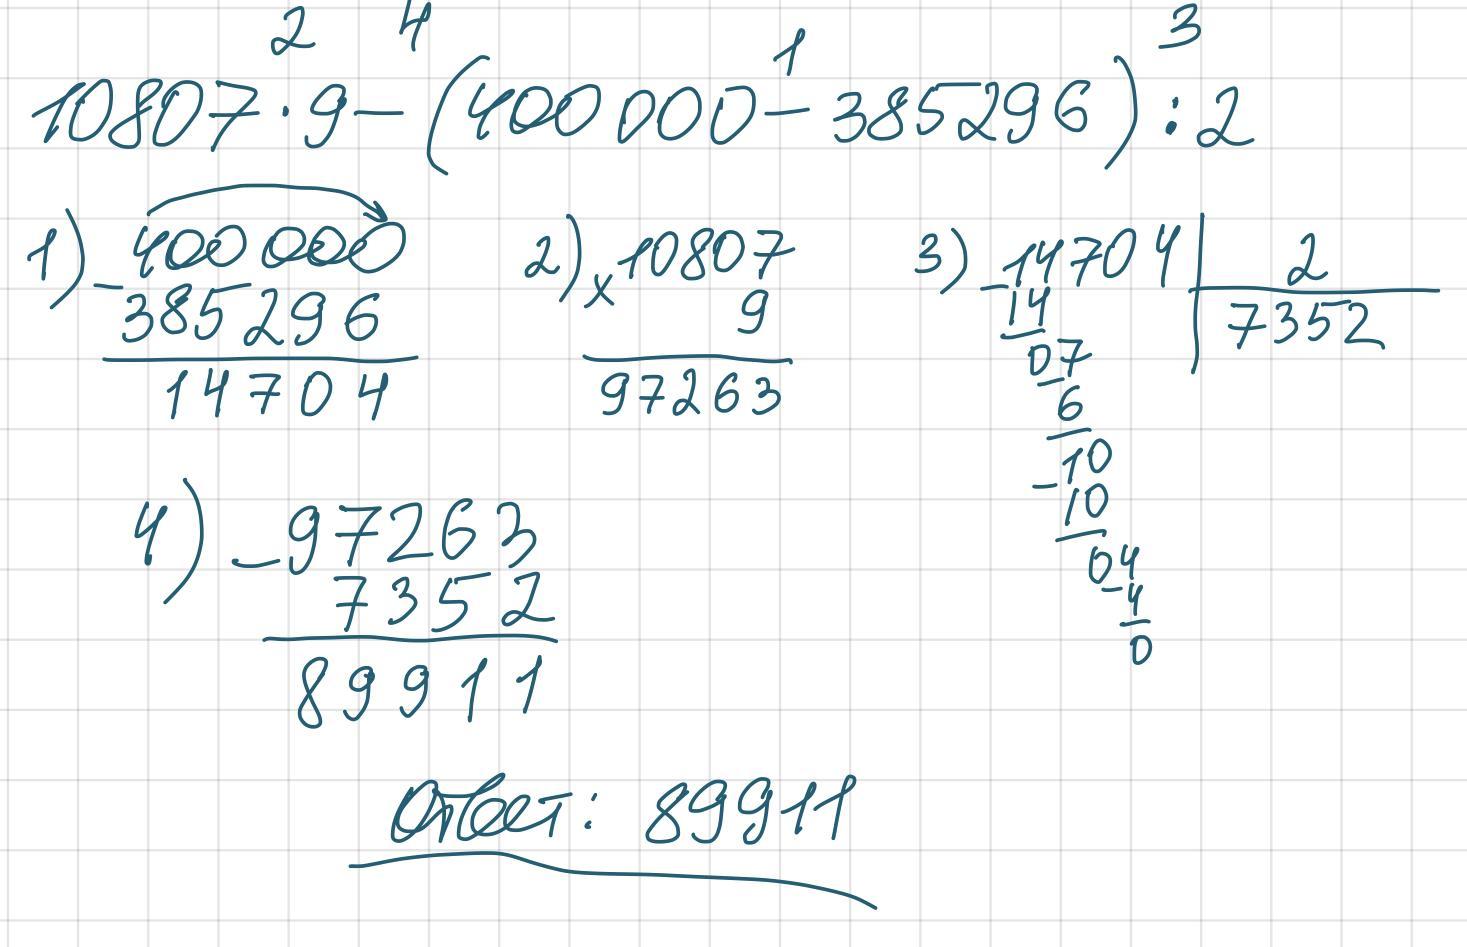 2 4 1 3
10807 · 9 - (400 000 - 385296) : 2
1) 400 000
- 385296
14704
2) 10807
× 9
97263
3) 14704 | 2
- 14 7352
07
- 6
10
- 10
04
- 4
0
4) - 97263
7352
89911
Ответ: 89911